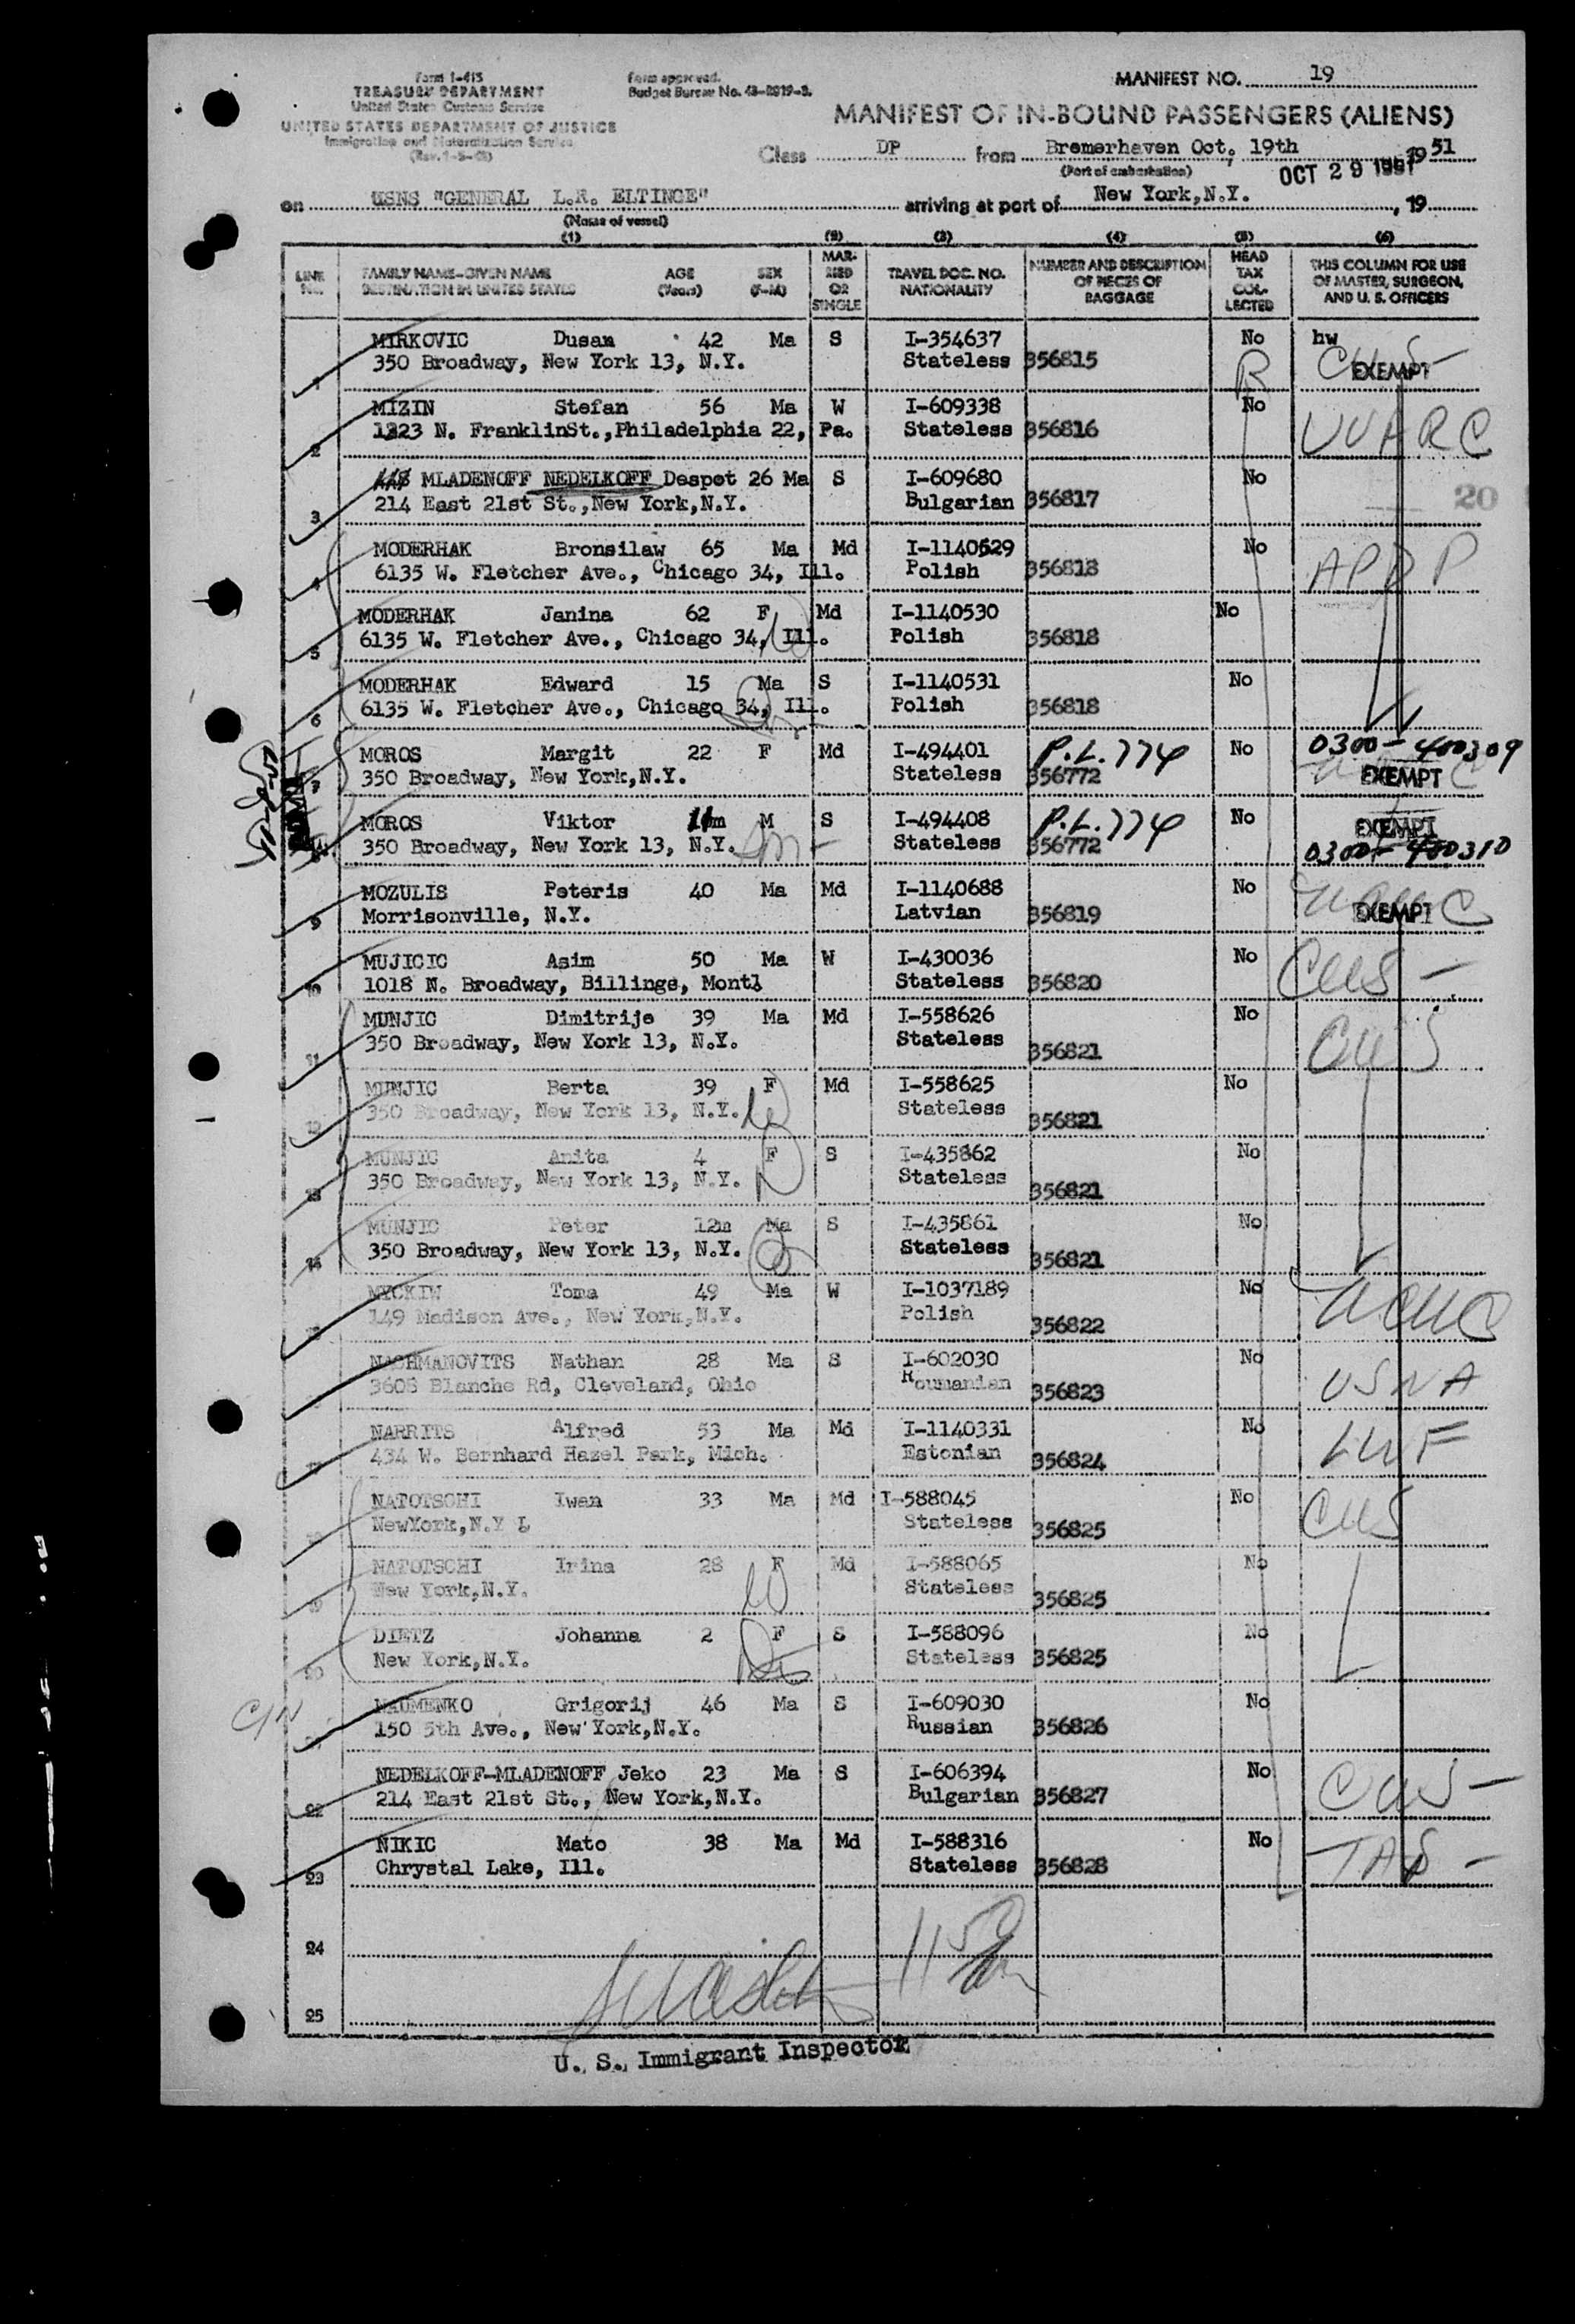 Form I-415
TREASURY DEPARTMENT
United States Customs Service
UNITED STATES DEPARTMENT OF JUSTICE
Immigration and Naturalization Service
Form approved.
Budget Bureau No. 43-R019-3.
MANIFEST NO. 19
MANIFEST OF IN-BOUND PASSENGERS (ALIENS)
Class DP from Bremerhaven Oct. 19th, 1951
(Port of embarkation) OCT 29 1951
on USNS "GENERAL L.R. ELTINGE" arriving at port of New York,N.Y. , 19
(Name of vessel)
(1) (2) (3) (4) (5) (6)
LINE No. FAMILY NAME-GIVEN NAME DESTINATION IN UNITED STATES AGE (Years) SEX (F-M) MARRIED OR SINGLE TRAVEL DOC. NO. NATIONALITY NUMBER AND DESCRIPTION OF PIECES OF BAGGAGE HEAD TAX COLLECTED THIS COLUMN FOR USE OF MASTER, SURGEON, AND U. S. OFFICERS
1 MIRKOVIC Dusan 42 Ma S I-354637 No hw
350 Broadway, New York 13, N.Y. Stateless 356815 EXEMPT
2 MIZIN Stefan 56 Ma W I-609338 No
1323 N. FranklinSt.,Philadelphia 22, Pa. Stateless 356816 UUARC
3 MLADENOFF NEDELKOFF Despot 26 Ma S I-609680 No
214 East 21st St.,New York,N.Y. Bulgarian 356817 20
4 MODERHAK Bronsilaw 65 Ma Md I-1140529 No
6135 W. Fletcher Ave., Chicago 34, Ill. Polish 356818
5 MODERHAK Janina 62 F Md I-1140530 No
6135 W. Fletcher Ave., Chicago 34, Ill. Polish 356818
6 MODERHAK Edward 15 Ma S I-1140531 No
6135 W. Fletcher Ave., Chicago 34, Ill. Polish 356818
7 MOROS Margit 22 F Md I-494401 P.L.774 No 0300-400309
350 Broadway, New York,N.Y. Stateless 356772 EXEMPT
MOROS Viktor 11m M S I-494408 P.L.774 No EXEMPT
350 Broadway, New York 13, N.Y. Stateless 356772 0300-400310
9 MOZULIS Peteris 40 Ma Md I-1140688 No
Morrisonville, N.Y. Latvian 356819 EXEMPT
10 MUJICIC Asim 50 Ma W I-430036 No
1018 N. Broadway, Billings, Montl Stateless 356820 CWS
11 MUNJIC Dimitrije 39 Ma Md I-558626 No
350 Broadway, New York 13, N.Y. Stateless 356821 CWS
12 MUNJIC Berta 39 F Md I-558625 No
350 Broadway, New York 13, N.Y. Stateless 356821
13 MUNJIC Anita 4 F S I-435862 No
350 Broadway, New York 13, N.Y. Stateless 356821
14 MUNJIC Peter 12m Ma S I-435861 No
350 Broadway, New York 13, N.Y. Stateless 356821
15 Toma 49 Ma W I-1037189 No
149 Madison Ave., New York,N.Y. Polish 356822
NACHMANOVITS Nathan 28 Ma S I-602030 No
3608 Blanche Rd, Cleveland, Ohio Roumanian 356823 USNA
17 NARRITS Alfred 53 Ma Md I-1140331 No
434 W. Bernhard Hazel Park, Mich. Estonian 356824 LWF
18 NATOTSCHI Iwan 33 Ma Md I-588045 No
NewYork,N.Y Stateless 356825 CWS
19 NATOTSCHI Irina 28 F Md I-588065 No
New York,N.Y. Stateless 356825
20 DIETZ Johanna 2 F S I-588096 No
New York,N.Y. Stateless 356825
21 NAUMENKO Grigorij 46 Ma S I-609030 No
150 5th Ave., New York,N.Y. Russian 356826
22 NEDELKOFF-MLADENOFF Jeko 23 Ma S I-606394 No
214 East 21st St., New York,N.Y. Bulgarian 356827 CWS
23 NIKIC Mato 38 Ma Md I-588316 No
Chrystal Lake, Ill. Stateless 356828
24
25
U. S. Immigrant Inspector